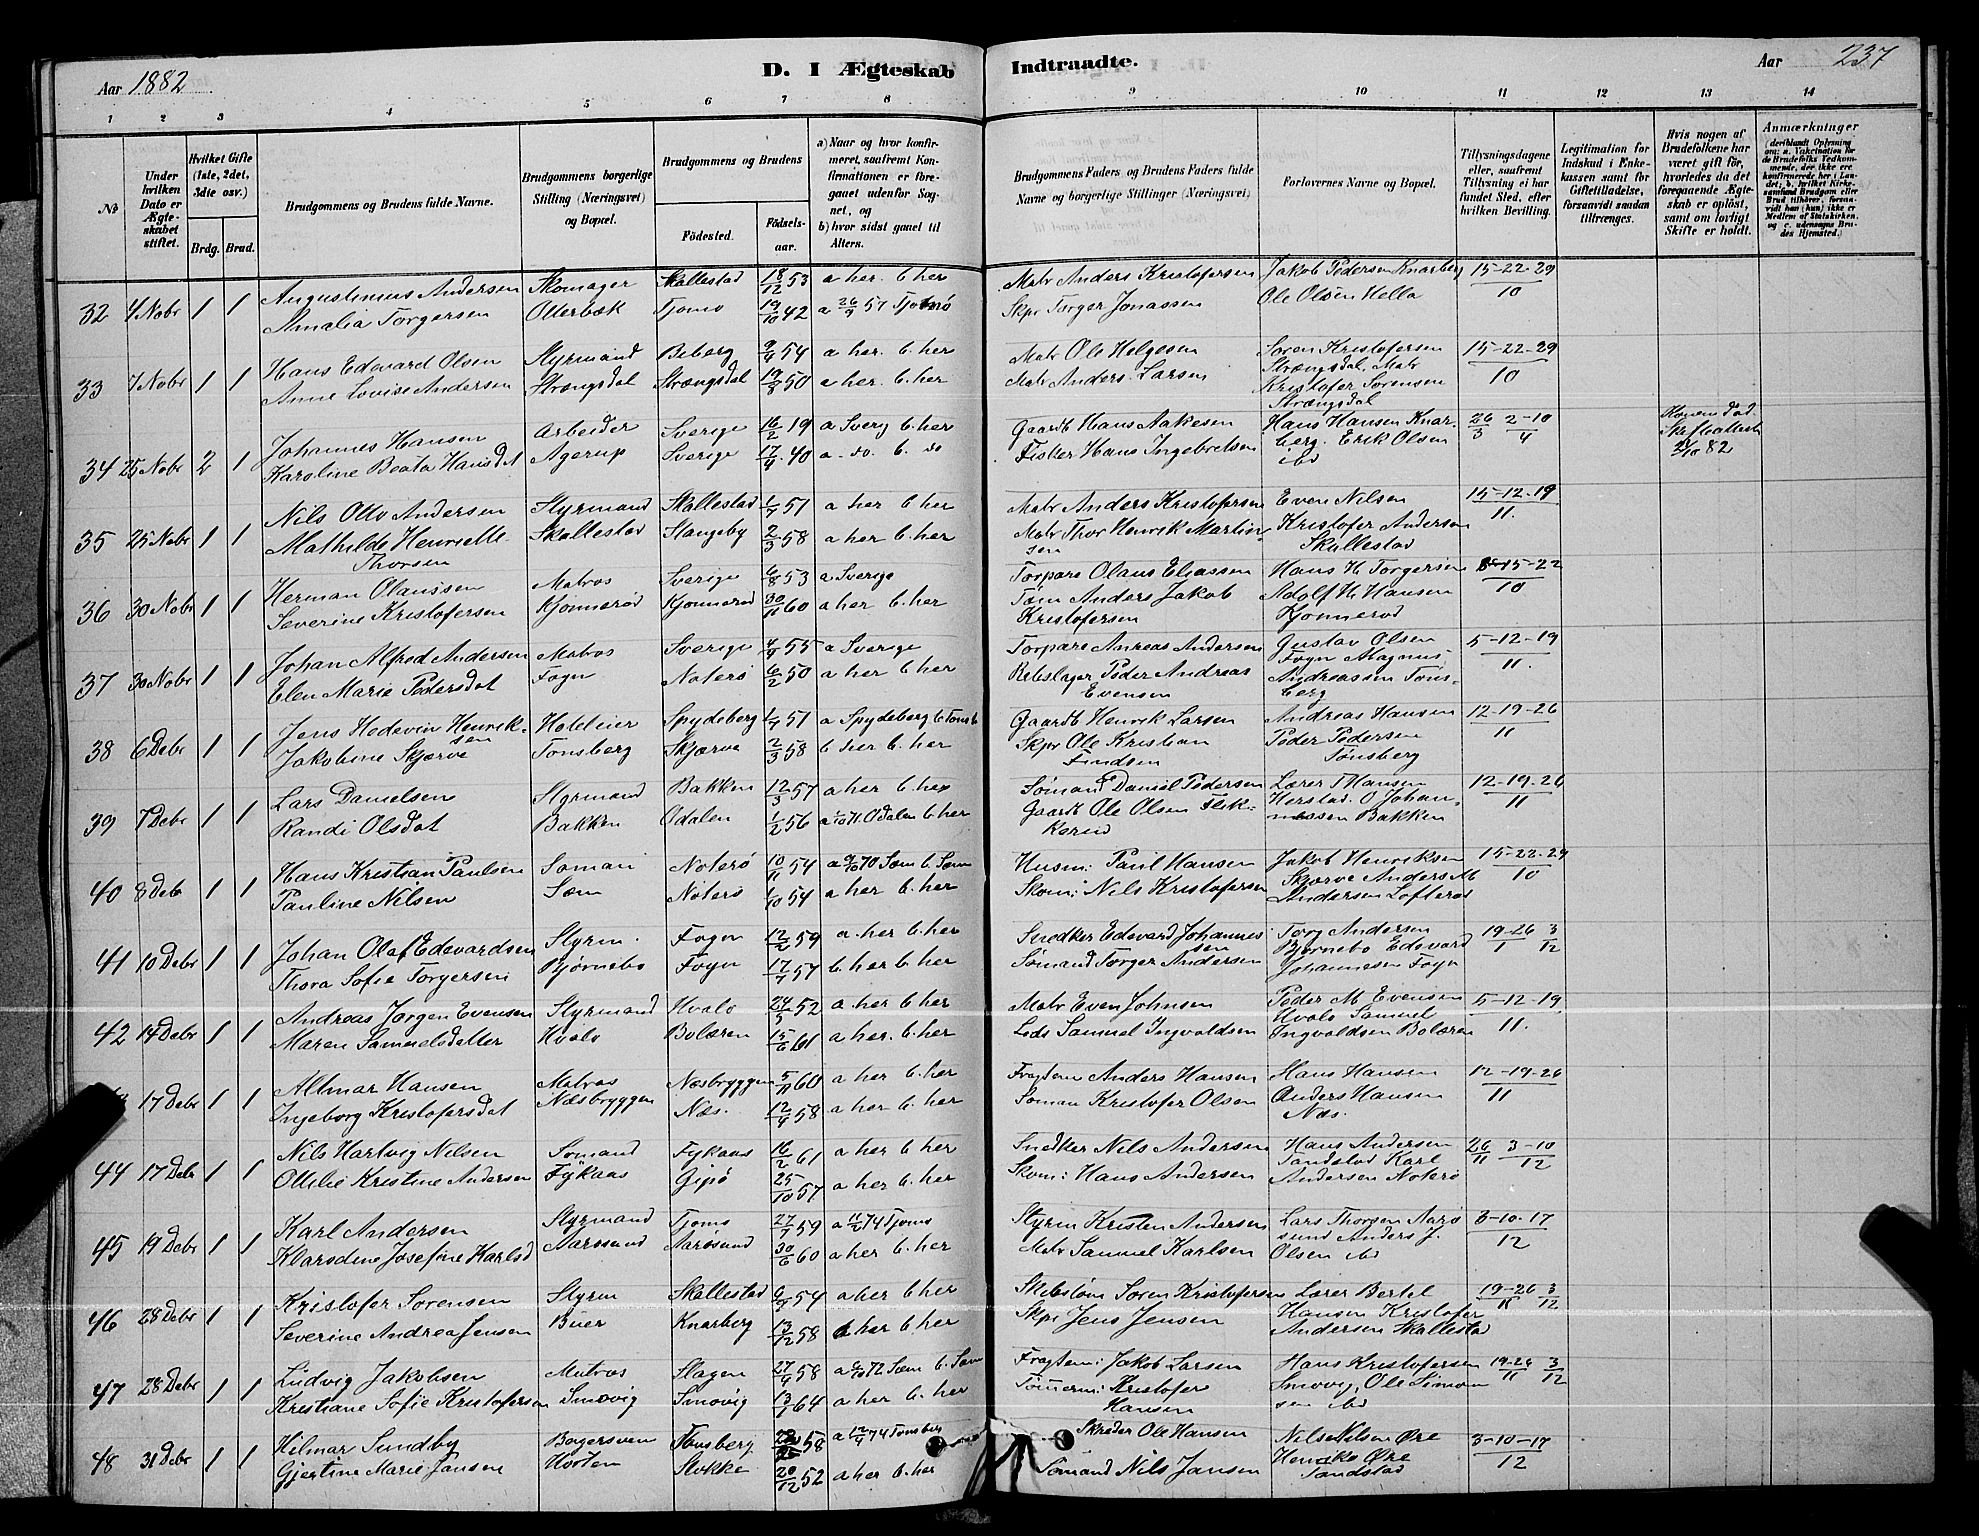 Aar 1882
D. I Ægteskab Indtraadte.
Aar 237
1 2 3 4 5 6 7 8 9 10 11 12 13 14
№
Under hvilken Dato er Ægteskabet stiftet.
Hvilket Gifte (1ste, 2det, 3die osv.)
Brdg. Brud.
Brudgommens og Brudens fulde Navne.
Brudgommens borgerlige Stilling (Næringsvei) og Bopæl.
Brudgommens og Brudens
Fødested.
Fødselsaar.
a) Naar og hvor konfirmeret, saafremt Konfirmationen er foregaaet udenfor Sognet, og
b) hvor sidst gaaet til Alters.
Brudgommens Faders og Brudens Faders fulde Navne og borgerlige Stillinger (Næringsvei)
Forlovernes Navne og Bopæl.
Tillysningsdagene eller, saafremt Tillysning ei har fundet Sted, efter hvilken Bevilling.
Legitimation for Indskud i Enkekassen samt for Giftetilladelse, forsaavidt saadan tiltrænges.
Hvis nogen af Brudefolkene har været gift før, hvorledes da det foregaaende Ægteskab er opløst, samt om lovligt Skifte er holdt.
Anmærkninger (deriblandt Oplysning om: a. Vakcination for de Brudefolks Vedkommende, der ikke ere konfirmerede her i Landet; b. hvilket Kirkesamfund Brudgom eller Brud tilhører, forsaavidt han (hun) ikke er Medlem af Statskirken, og c. udensogns Brudes Hjemsted.)
32 4 Nobr 1 1 Augustinius Andersen Skomager Skallestad 18/12 53 a her. b her Matr Anders Kristofersen Jakob Pedersen Knarberg 15-22-29/10
Amalia Torgersen Otterbæk Tjømø 19/10 42 a 26/9 57 Tjømø Skpr Tørger Jonassen Ole Olsen Hella
33 7 Nobr 1 1 Hans Edvard Olsen Styrmand Beberg 9/4 54 a her. b. her Matr Ole Helgesen Søren Kristofersen 15-22-29/10
Anne Lovise Andersen Strængsdal Strængsdal 19/8 50 a her. b. her Matr Anders Larsen Strængsdal, Matr
Kristofer Sørensen
Strængsdal
34 25 Nobr 2 1 Johannes Hansen Arbeider Sverige 16/2 19 a Sverg b. her Gaardb Hans Aakesen Hans Hansen Knar- 26/3 2-10/4
Karoline Beata Hansdat Agerup Sverige 17/4 40 a. do. b. do Fisker Hans Ingebretsen berg. Erik Olsen
ibd
35 25 Nobr 1 1 Nils Otto Andersen Styrmand Skallestad 51 a her b her Matr Anders Kristofersen Even Nilsen 15-12-19/11.
Mathilde Henriette Skallestad Stangeby 2/3 58 a her b. her Matr Thor Henrik Martin- Kristofer Andersen
Thorsen sen Skallestad
36 30 Nobr 1 1 Herman Olaussen Matros Sverige 6/8 53 a Sverige Torpare Olaus Eliassen Hans H. Torgersen 8-15-22/10
Severine Kristofersen Kjønnerød Kjønnerød 30/11 60 a her b. her Tøm Anders Jakob Adolf H. Hansen
Kristofersen Kjønnerød
37 30 Nobr 1 1 Johan Alfred Andersen Matros Sverige 4/9 55 a Sverige Torpare Anreas Andersen Gustav Olsen 5-12-19/11.
Elen Marie Pedersdat Føyn Nøterø 6/2 50 a her b her Rebslager Peder Andreas Føyn Magnus
Evensen Andreassen Tøns-
berg
38 6 Debr 1 1 Jens Hedevin Henrik- Hoteleier Spydeberg 51 a Spydeberg b Tønsb Gaardb Henrik Larsen Andreas Hansen 12-19-26/11
sen
Jakobine Skjærve Tønsberg Skjærve 2/3 58 b her b. her Skpr Ole Kristian Peder Pedersen
Findsen Tønsberg
39 7 Debr 1 1 Lars Danielsen Styrmand Bakken 12/3 57 a her b. her Sømand Daniel Pedersen Lærer T Hansen 12-19-26/11
Randi Olsdat Bakken Odalen 1/2 56 a 71 Odalen b her Gaardb Ole Olsen Herstad. O Johan-
nessen Bakken
40 8 Deb 1 1 Hans Kristian Paulsen Søman Nøterø 10/11 54 a 9/10 70 Sæm b. Sæm Husm: Paul Hansen Jakob Henriksen 15-22-29/10
Pauline Nilsen Sæm Nøterø 6/10 54 a her b. her Skom: Nils Kristofersen Skjærve Anders M
Andersen Lofterød
41 10 Debr 1 1 Johan Olaf Edevardsen Styrm. Føyn 12/2 59 a her. b. her Snedker Edevard Johannes Torg Andersen 19-26/1 3/12
sen
Thora Sofie Torgersen Bjørnebo Føyn 17/7 57 b. her b her Sømand Torger Andersen Bjørnebo Edevard
Johannesen Føyn
42 14 Debr 1 1 Andreas Jørgen Evensen Styrmand Hvalø 24/5 52 a her b her Matr Even Johnsen Peder M Evensen 5-12-19/11.
Maren Samuelsdatter Hvalø Bolæren 15/6 61 a her. b. her Lods Samuel Ingvaldsen Hvalø Samuel
Ingvaldsen Bolæren
17 Debr 1 1 Altmar Hansen Matros Næsbryggen 5/11 60 a her b. her Fragtem Anders Hansen Hans Hansen 12-19-26/11
Ingeborg Kristofersdat Næsbryggen Næs. 12/4 58 a her b. her Søman Kristofer Olsen Anders Hansen
Næs.
44 17 Debr 1 1 Nils Hartvig Nilsen Sømand Fykaas 16/2 61 a her b. her Snedker Nils Andersen Hans Andersen 26/11 3-10/12
Ottilie Kristine Andersen Fykaas Gipø 25/10 57 a her b. her Skom: Hans Andersen Sandstad Karl
Andersen Nøterø
45 19 Debr 1 1 Karl Andersen Styrmand Tjømø 27/7 59 a 11/2 74 Tjømø Styrm Kristen Andersen Lars Thorsen Aarø 3-10-17/12
Klarsdine Josefine Karlsd Aarøsund Aarøsund 30/6 60 a her b. her Matr Samuel Karlsen sund Anders J.
Olsen ibd
46 28 Debr 1 1 Kristofer Sørensen Styrm Skallestad 54 a her b her Skibstøm Søren Kristofersen Lærer Bertel 19-26/11 3/12
Severine Andrea Jensen Buer Knarberg 13/12 58 a her b her Skpr Jens Jensen Hansen Kristofer
Andersen Skallestad
47 28 Debr 1 1 Ludvig Jakobsen Matros Slagen 27/4 58 a 72 Sæm b. Sæm Fragtem: Jakob Larsen Hans Kristofersen 19-26/11 3/12
Kristiane Sofie Kristofersen Smøvig Smøvig 13/7 64 a her b. her Tømerm: Kristofer Smøvig, Ole Simon
Hansen sen ibd
48 31 Debr 1 1 Hilmar Sundby Bagersven Tønsberg 58 a 12/4 74 Tønsberg Skræder Ole Hansen Nils Nilsen Øre 3-10-17/12
Gjertine Marie Jansen Horten Stokke 20/12 52 a her b. her Sømand Nils Jansen Henrik Øre
Sandstad